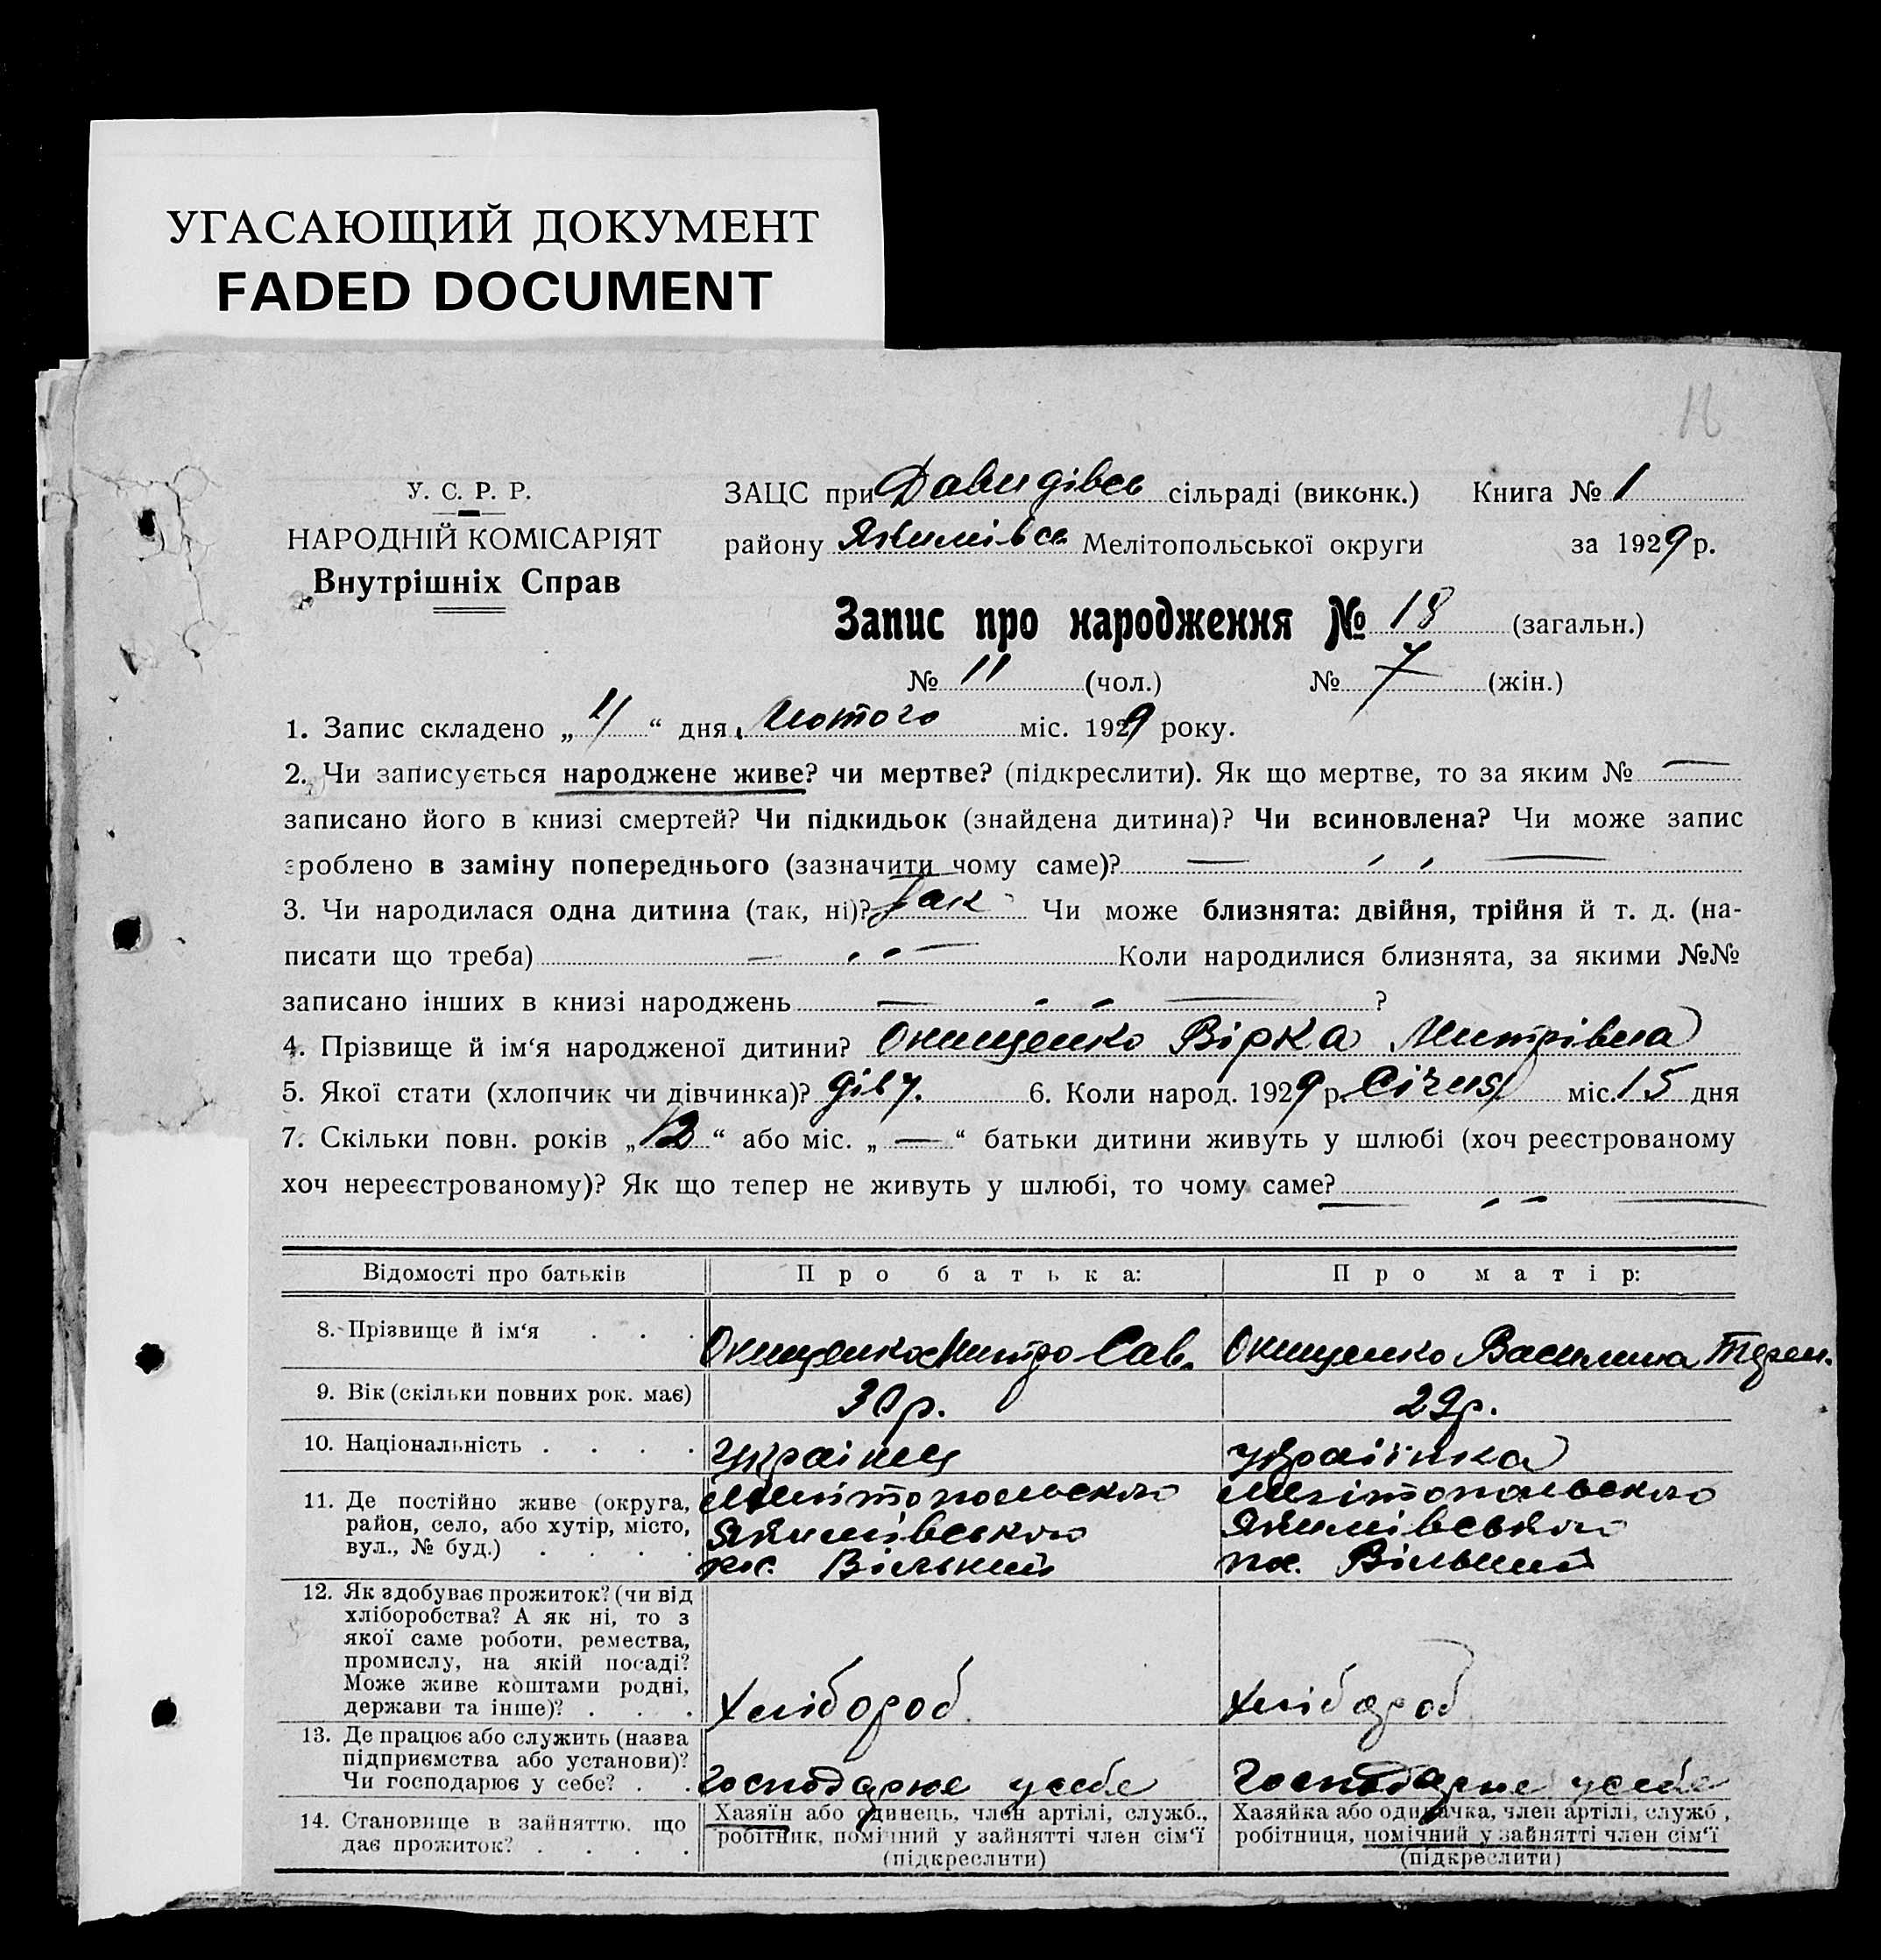 УГАСАЮЩИЙ ДОКУМЕНТ
FADED DOCUMENT
18
У. С. Р. Р.
НАРОДНІЙ КОМІСАРІЯТ
Внутрішніх Справ
ЗАЦС при Давидівсь сільраді (виконк.) Книга № 1
району Якимівсь Мелітопольської округи за 1929 р.
Запис про народження № 18 (загальн.)
№ 11 (чол.) № 7 (жін.)
1. Запис складено „ “ дня Лютого міс. 1929 року.
2. Чи записується народжене живе? чи мертве? (підкреслити). Як що мертве, то за яким № —
записано його в книзі смертей? Чи підкидьок (знайдена дитина)? Чи всиновлена? Чи може запис
зроблено в заміну попереднього (зазначити чому саме)? — „ —
3. Чи народилася одна дитина (так, ні)? Так Чи може близнята: двійня, трійня й т. д. (на-
писати що треба) — „ — Коли народилися близнята, за якими №№
записано інших в книзі народжень — „ — ?
4. Прізвище й ім‘я народженої дитини? Онищенко Вірка Митрівна
5. Якої стати (хлопчик чи дівчинка)? дівч. 6. Коли народ. 1929 р. Січня міс. 15 дня
7. Скільки повн. років „12“ або міс. „—“ батьки дитини живуть у шлюбі (хоч реєстрованому
хоч нереєстрованому)? Як що тепер не живуть у шлюбі, то чому саме? — „ —
Відомості про батьків Про батька: Про матір:
8. Прізвище й ім‘я . . . Онищенко Митро Сав. Онищенко Василина Терен.
9. Вік (скільки повних рок. має) 30 р. 29 р.
10. Національність . . . . українец українка
11. Де постійно живе (округа, Мелітопольско Мелітопольско
район, село, або хутір, місто, Якимівсько Якимівсько
вул., № буд.) . . . . Вільний Вільний
12. Як здобуває прожиток? (чи від
хліборобства? А як ні, то з
якої саме роботи, ремества,
промислу, на якій посаді?
Може живе коштами родні,
держави та інше)? . . . Хлібороб Хлібороб
13. Де працює або служить (назва
підприємства або установи)?
Чи господарює у себе? . . Господарює у себе Господарює у себе
14. Становище в зайняттю, що
дає прожиток? . . . .
Хазяїн або одинець, член артілі, служб.,
робітник, помічний у зайнятті член сім‘ї
(підкреслити)
Хазяйка або одиначка, член артілі, служб.,
робітниця, помічний у зайнятті член сім‘ї
(підкреслити)